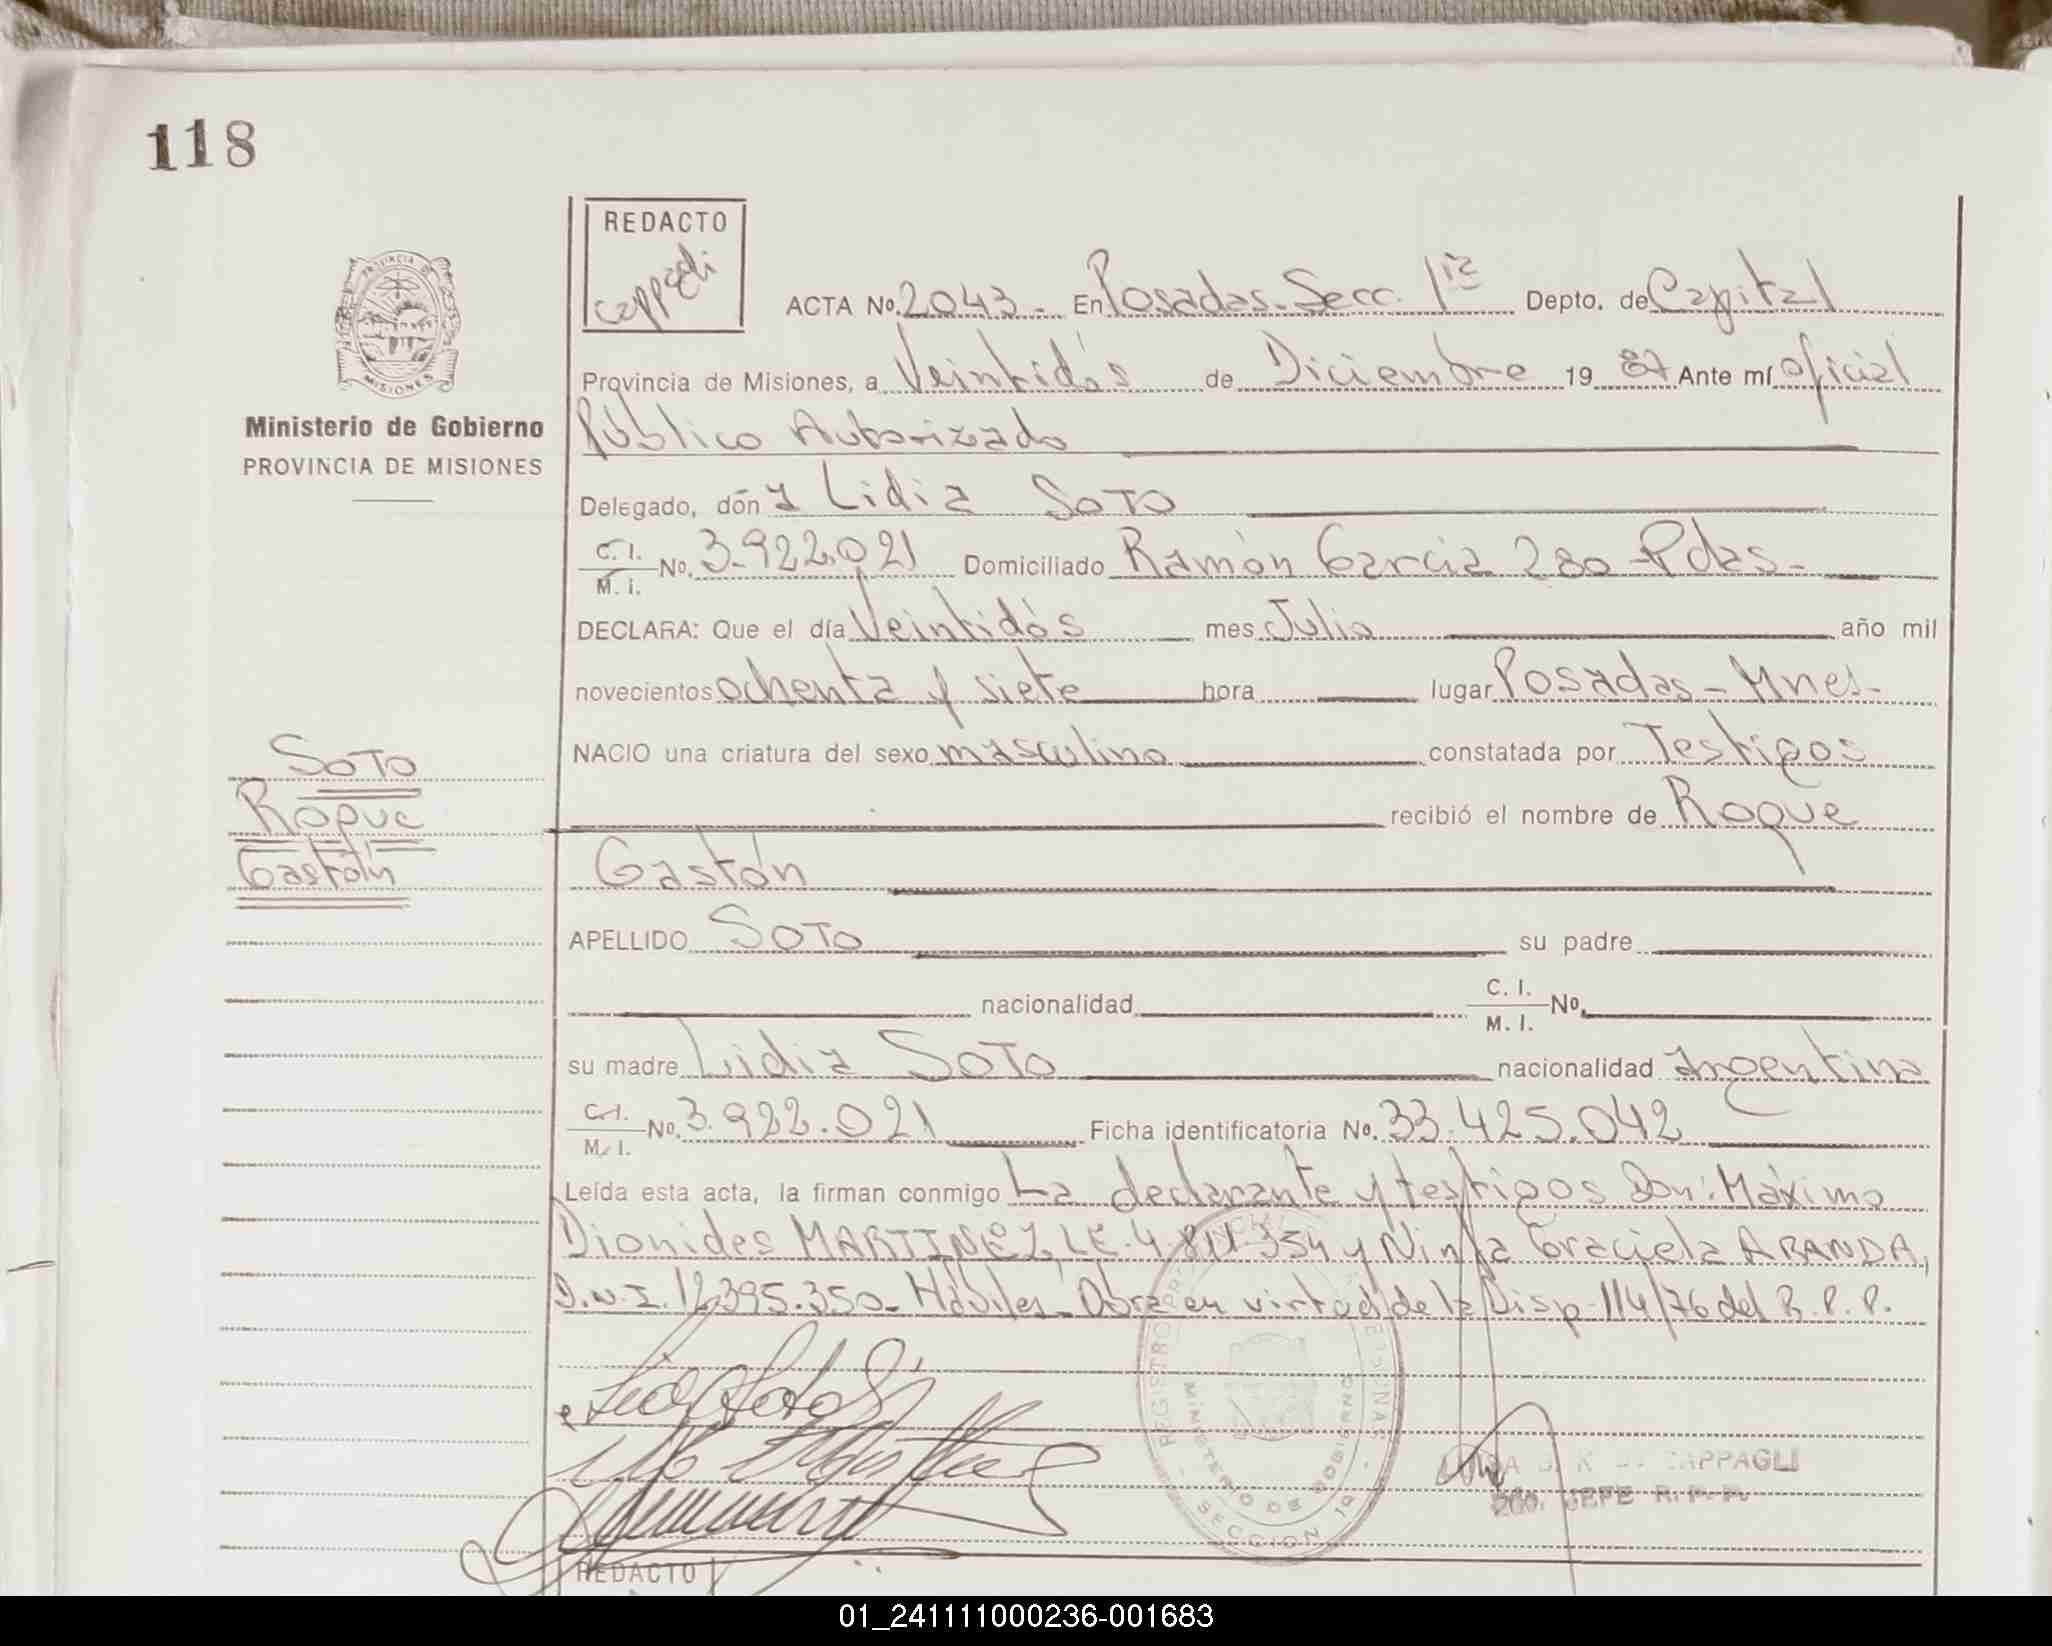 118
REDACTO
Cappagli
ACTA No. 2043 - En Posadas - Secc. 1ra Depto. de Capital
Provincia de Misiones, a Veintidós de Diciembre 19 87 Ante mí oficial
Público Autorizado
Ministerio de Gobierno
PROVINCIA DE MISIONES
Delegado, doña Lidia SOTO
C. I. / M. I. No. 3.922.021 Domiciliado Ramón García 280 - Pdas -
DECLARA: Que el día Veintidós mes Julio año mil
novecientos ochenta y siete hora lugar Posadas - Mnes -
NACIO una criatura del sexo masculino constatada por Testigos
recibió el nombre de Roque
Gastón
SOTO
Roque
Gastón
APELLIDO SOTO su padre
nacionalidad C. I. / M. I. No.
su madre Lidia SOTO nacionalidad Argentina
C. I. / M. I. No. 3.922.021 Ficha identificatoria No. 33.425.042
Leída esta acta, la firman conmigo La declarante y testigos Don: Máximo
Dionides MARTINEZ, L.E. 4. 334 y Ninfa Graciela ARANDA,
D.N.I. 12.395.350 - Hábiles - Obra en virtud de la Disp. 114/76 del R. P. P.
REGISTRO
MINISTERIO DE GOBIERNO
SECCION 1a
CAPPAGLI
2do. JEFE R. P. P.
REDACTO
01_241111000236-001683